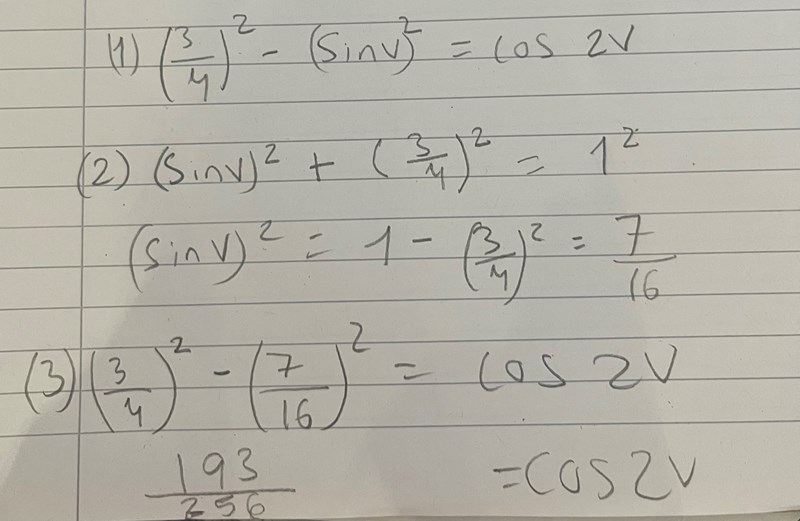 (1) (3/4)² - (sinv)² = cos 2v
(2) (sinv)² + (3/4)² = 1²
(sinv)² = 1 - (3/4)² = 7/16
(3) (3/4)² - (7/16)² = cos 2v
193/256 = cos 2v